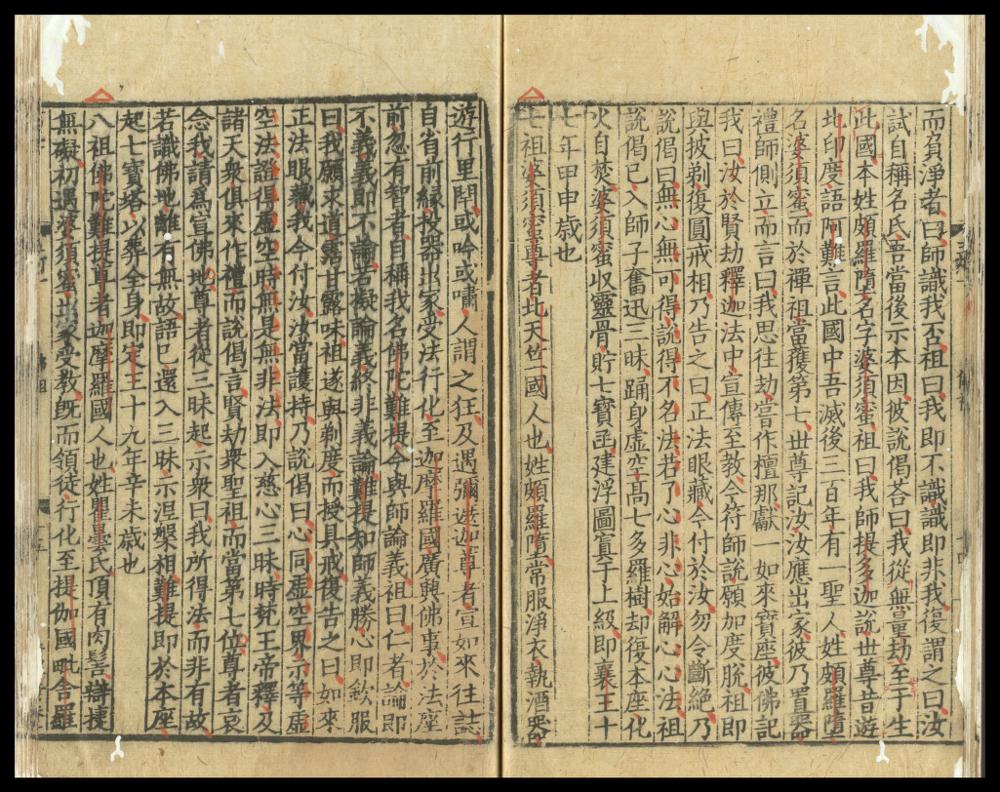 而負淨者曰師識我否祖曰我即不識識即非我復謂之曰汝
試自稱名氏吾當後示本因彼說偈荅曰我從無量劫至于生
此國本姓頗羅墮名字婆須蜜祖曰我師提多迦說世尊昔遊
北印度語阿難言此國中吾滅後三百年有一聖人姓頗羅墮
名婆須蜜而於禪祖當獲第七世尊記汝汝應出家彼乃置器
禮師側立而言曰我思往劫甞作檀那獻一如來寶座彼佛記
我曰汝於賢劫釋迦法中宣傳至教今符師說願加度脫祖即
與披剃復圓戒相乃告之曰正法眼藏今付於汝勿令斷絶乃
說偈曰無心無可得說得不名法若了心非心始解心心法祖
說偈已入師子奮迅三昧踊身虛空高七多羅樹却復本座化
火自焚婆須蜜收靈骨貯七寶函建浮圖寘于上級即襄王十
七年甲申歲也
七祖婆須蜜尊者北天竺國人也姓頗羅墮常服淨衣執酒器
遊行里閈或吟或嘯人謂之狂及遇彌遮迦尊者宣如來往誌
自省前緣投器出家受法行化至迦摩羅國廣興佛事於法座
前忽有智者自稱我名佛陀難提今與師論義祖曰仁者論即
不義義即不論若擬論義終非義論難提知師義勝心即欽服
曰我願求道霑甘露味祖遂與剃度而授具戒復告之曰如來
正法眼藏我今付汝汝當護持乃說偈曰心同虛空界示等虛
空法證得虛空時無是無非法即入慈心三昧時梵王帝釋及
諸天衆俱來作禮而說偈言賢劫衆聖祖而當第七位尊者哀
念我請爲宣佛地尊者從三昧起示衆曰我所得法而非有故
若識佛地離有無故語已還入三昧示涅槃相難提即於本座
起七寶塔以葬全身即定王十九年辛未歲也
八祖佛陀難提尊者迦摩羅國人也姓瞿曇氏頂有肉髻辯捷
無礙初遇婆須蜜出家受教旣而領徒行化至提伽國毗舍羅